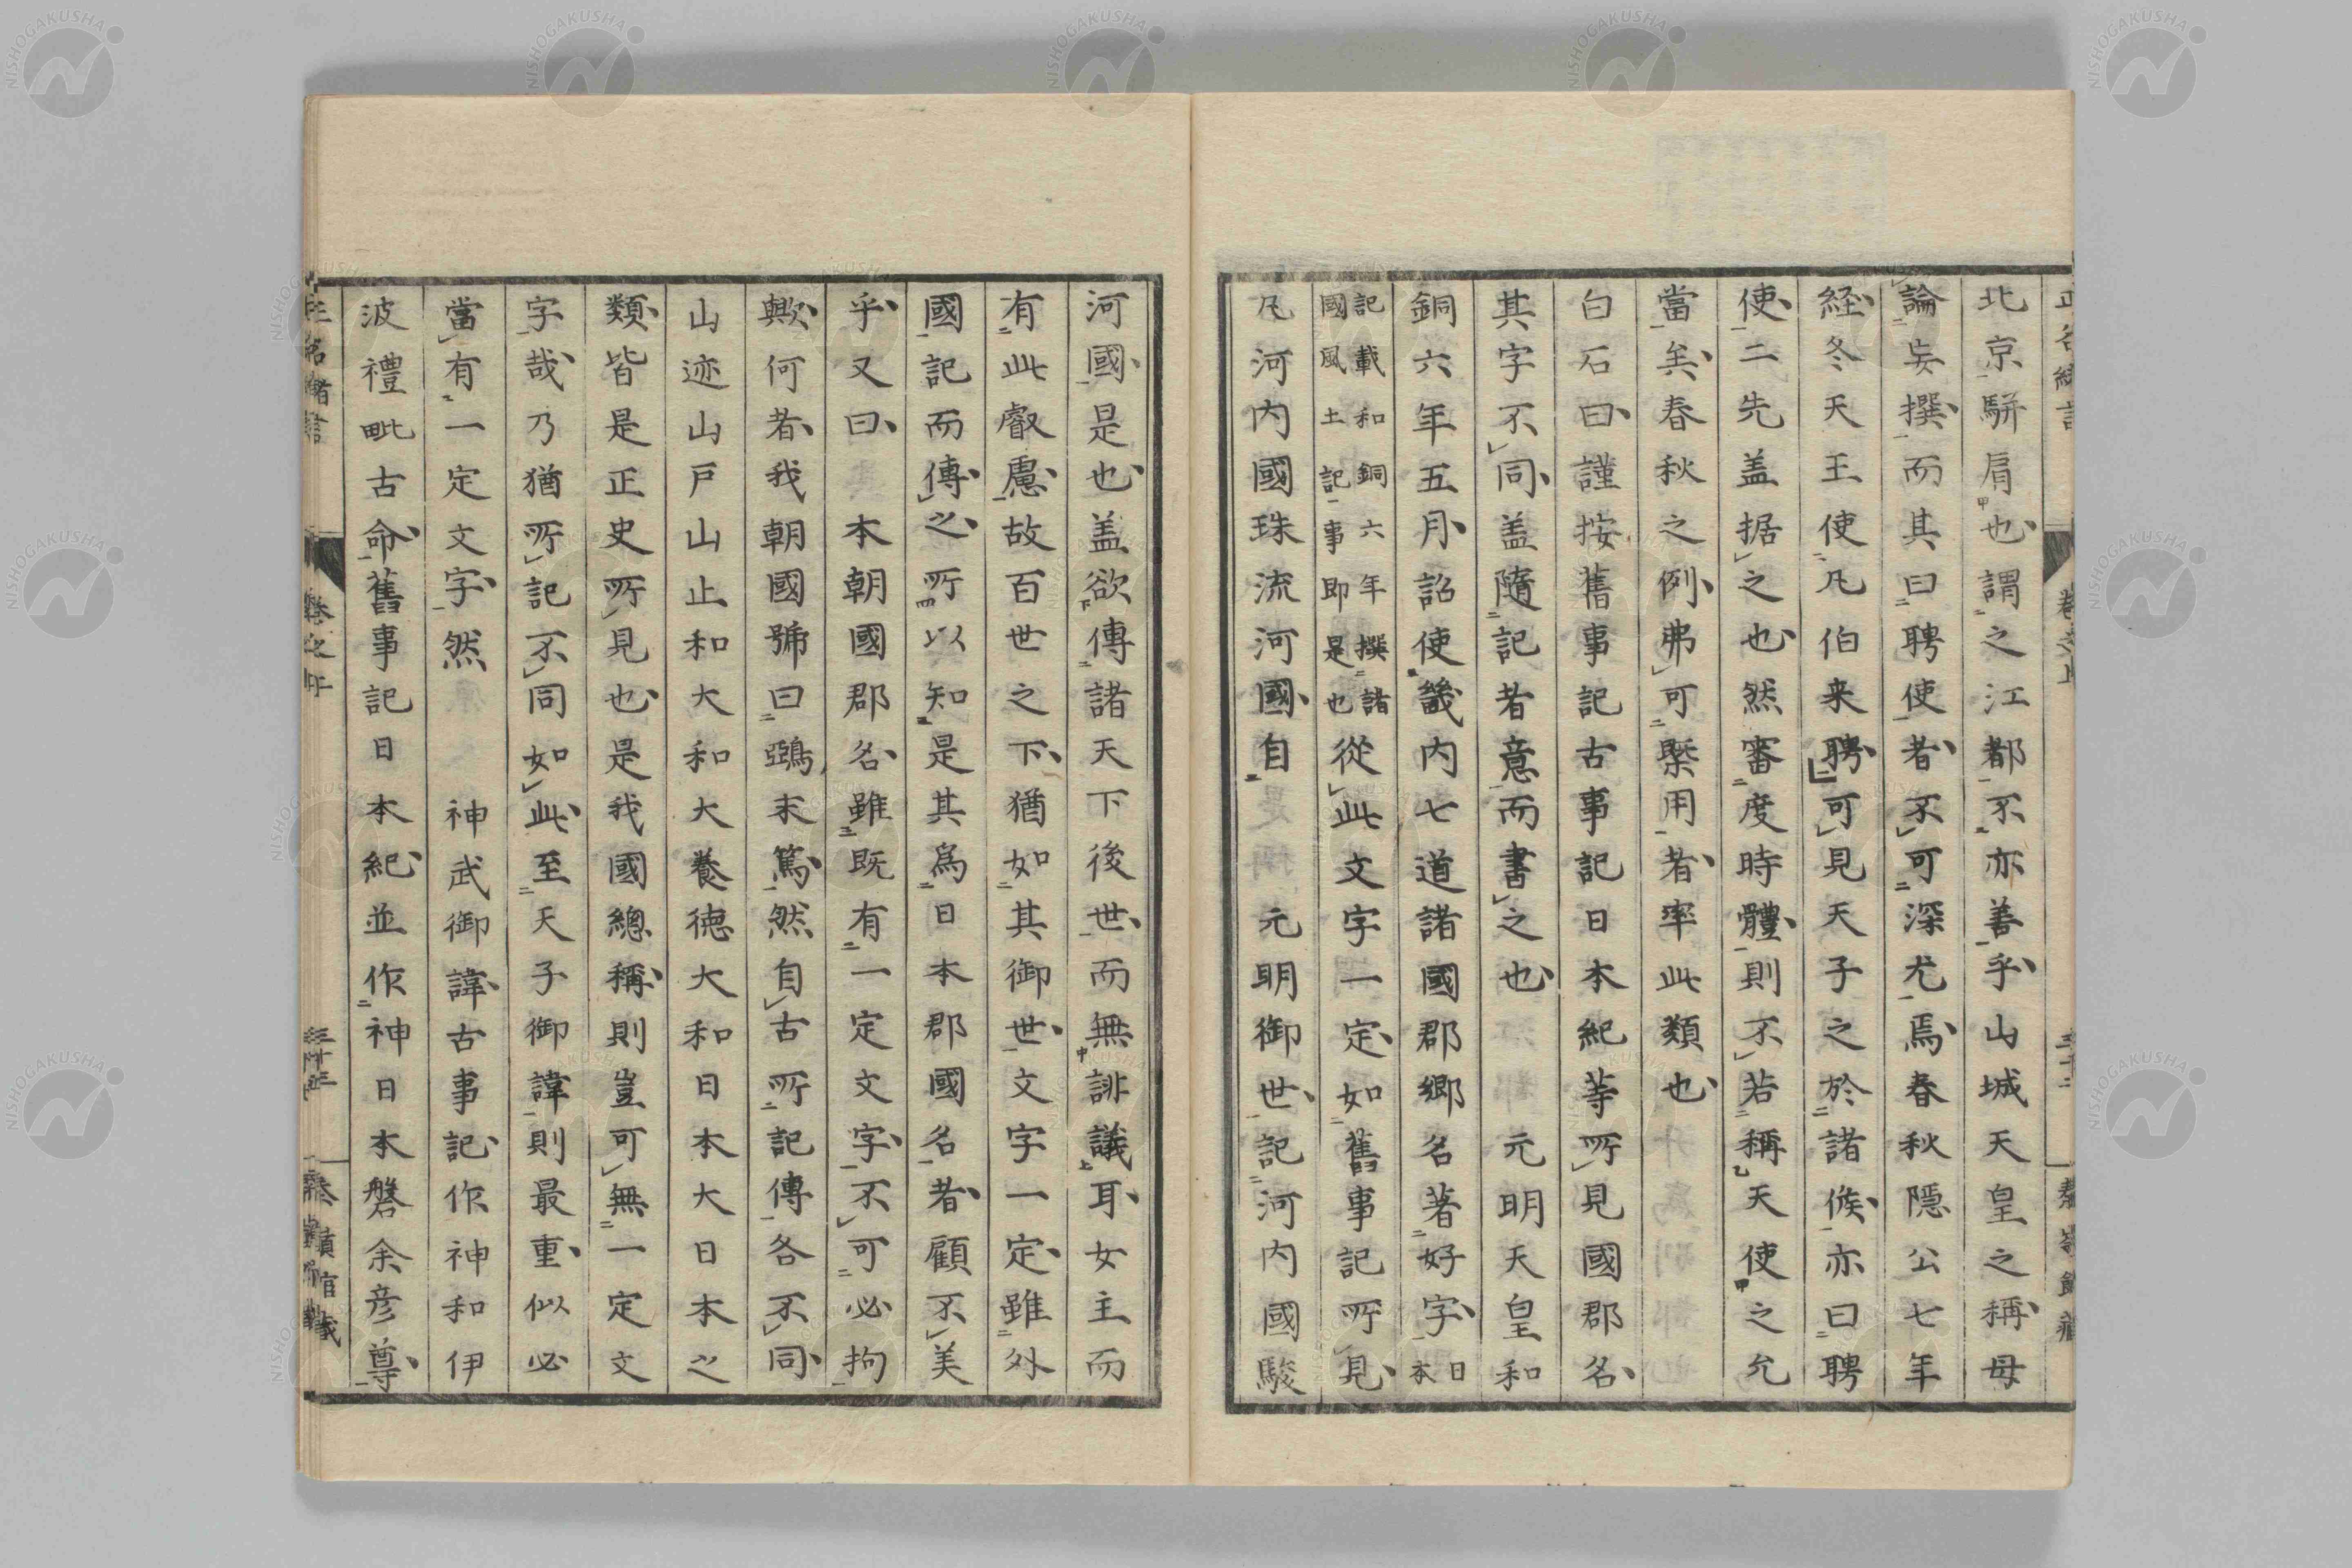 北京駢肩也謂之江都不亦善乎山城天皇之稱毋
論妄撰而其曰聘使者不可深尤焉春秋隱公七年
経冬天王使凡伯来聘可見天子之於諸侯亦曰聘
使二先盖据之也然審度時體則不若稱天使之允
當矣春秋之例弗可槩用者率此類也
白石曰謹按舊事記古事記日本紀等所見國郡名
其字不同盖隨記者意而書之也　元明天皇和
銅六年五月詔使畿内七道諸國郡郷名著好字日本
記載和銅六年撰諸國風土記事即是也從此文字一定如舊事記所見
凡河内國珠流河國自　元明御世記河内國駿
河國是也盖欲傳諸天下後世而無誹議耳女主而
有此叡慮故百世之下猶如其御世文字一定雖外
國記而傳之所以知是其爲日本郡國名者顧不美
乎又曰　本朝國郡名雖既有一定文字不可必拘
歟何者我朝國號曰鵶末篤然自古所記傳各不同
山迹山戸山止和大和大養德大和日本大日本之
類皆是正史所見也是我國總稱則豈可無一定文
字哉乃猶所記不同如此至天子御諱則最重似必
當有一定文字然　神武御諱古事記作神和伊
波禮毗古命舊事記日本紀並作神日本磐余彦尊